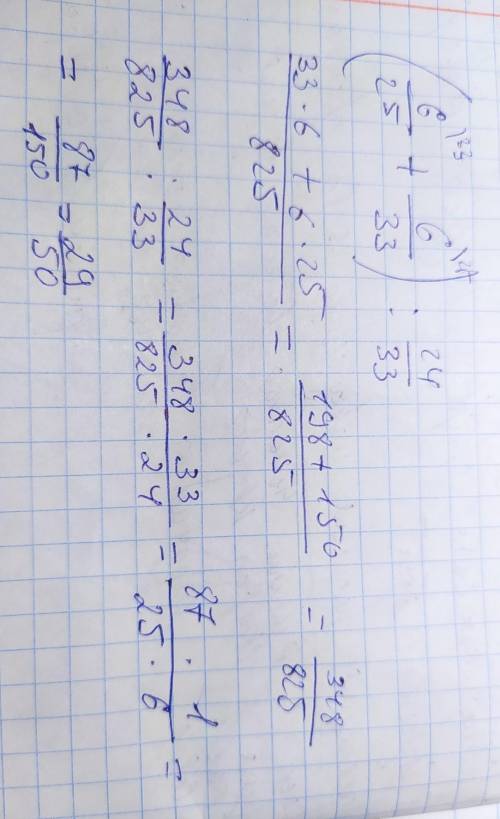 (6\33/25 + 6\25/33) : 24/33
33·6 + 6·25/825 = 198+150/825 = 348/825
348/825 : 24/33 = 348·33/825·24 = 87·1/25·6 =
= 87/150 = 29/50